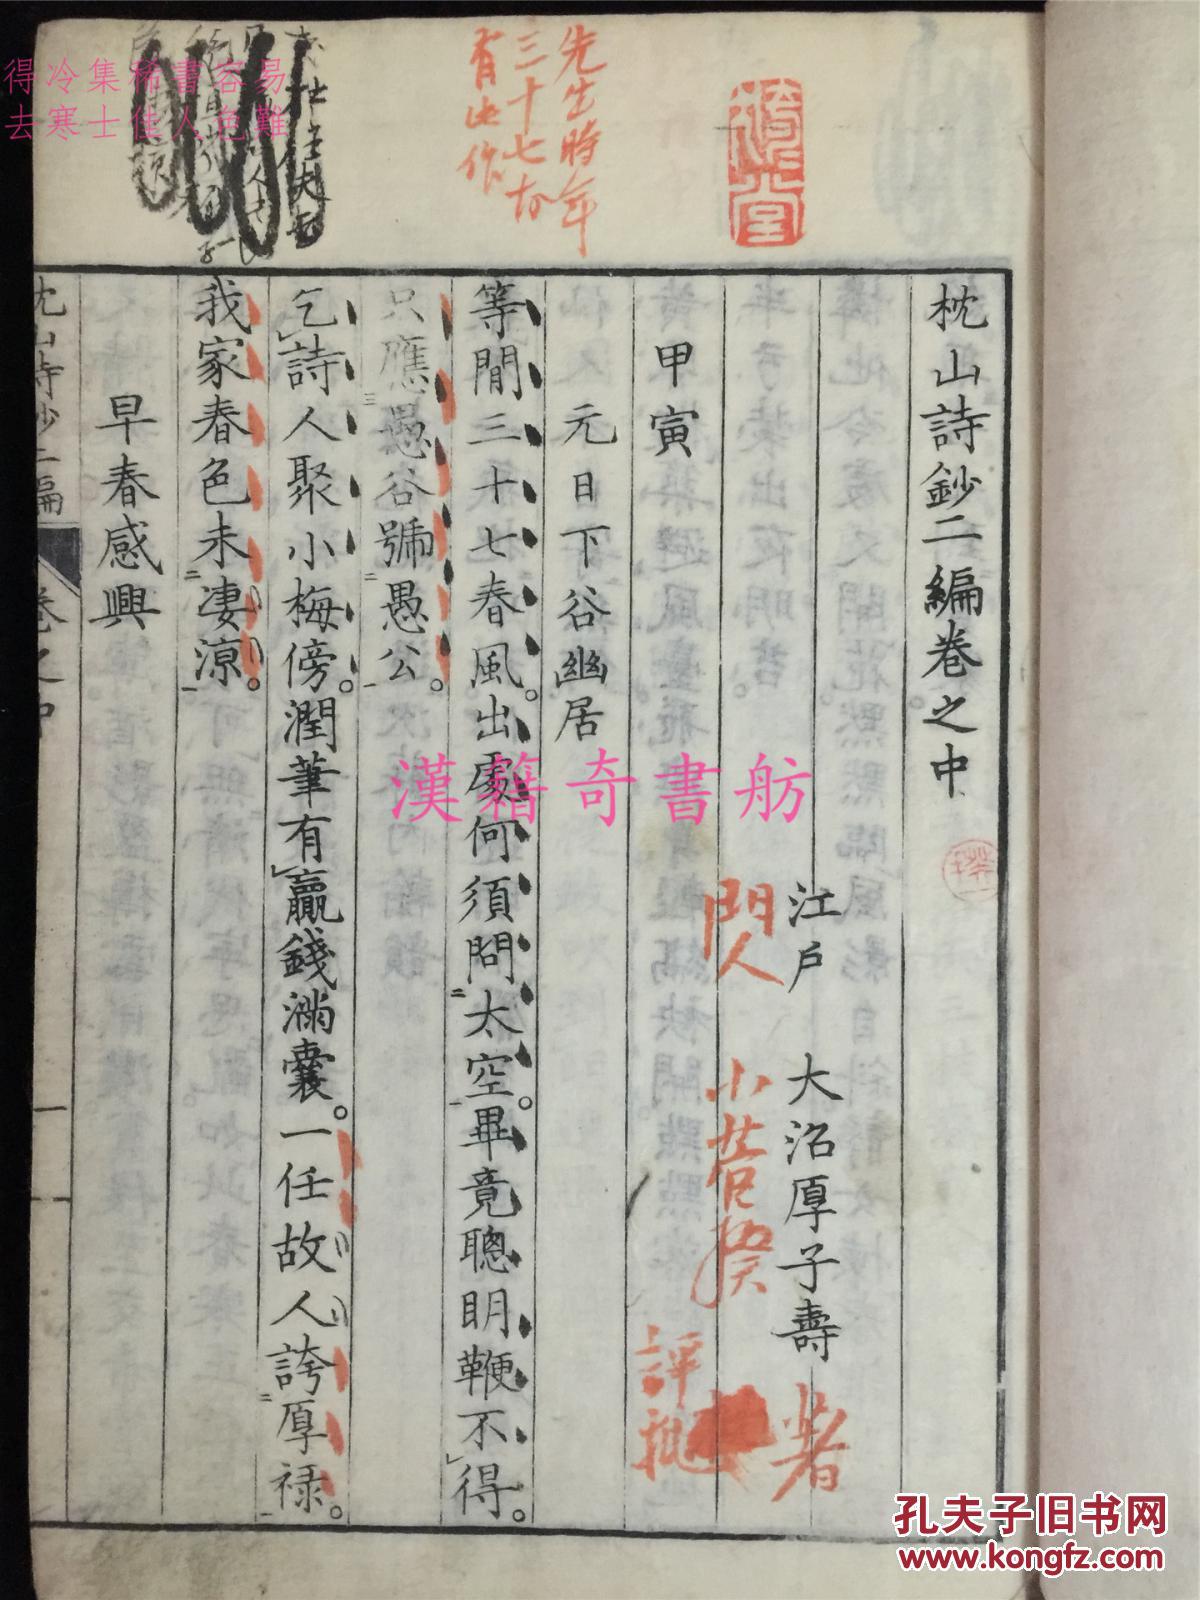 枕山詩鈔二編卷之中
江戶　大沼厚子壽
著
門人　小菅揆
評批
甲寅
元日下谷幽居
等閒三十七春風。出處何須問太空。畢竟聰明鞭不得。
只應愚谷號愚公。
乞詩人聚小梅傍。潤筆有贏錢滿囊。一任故人誇厚祿。
我家春色未凄涼。
早春感興
先生時年
三十七故
有此作
卷之中
一
得冷集稀書容易
去寒士佳人色難
漢籍奇書舫
孔夫子旧书网
www.kongfz.com